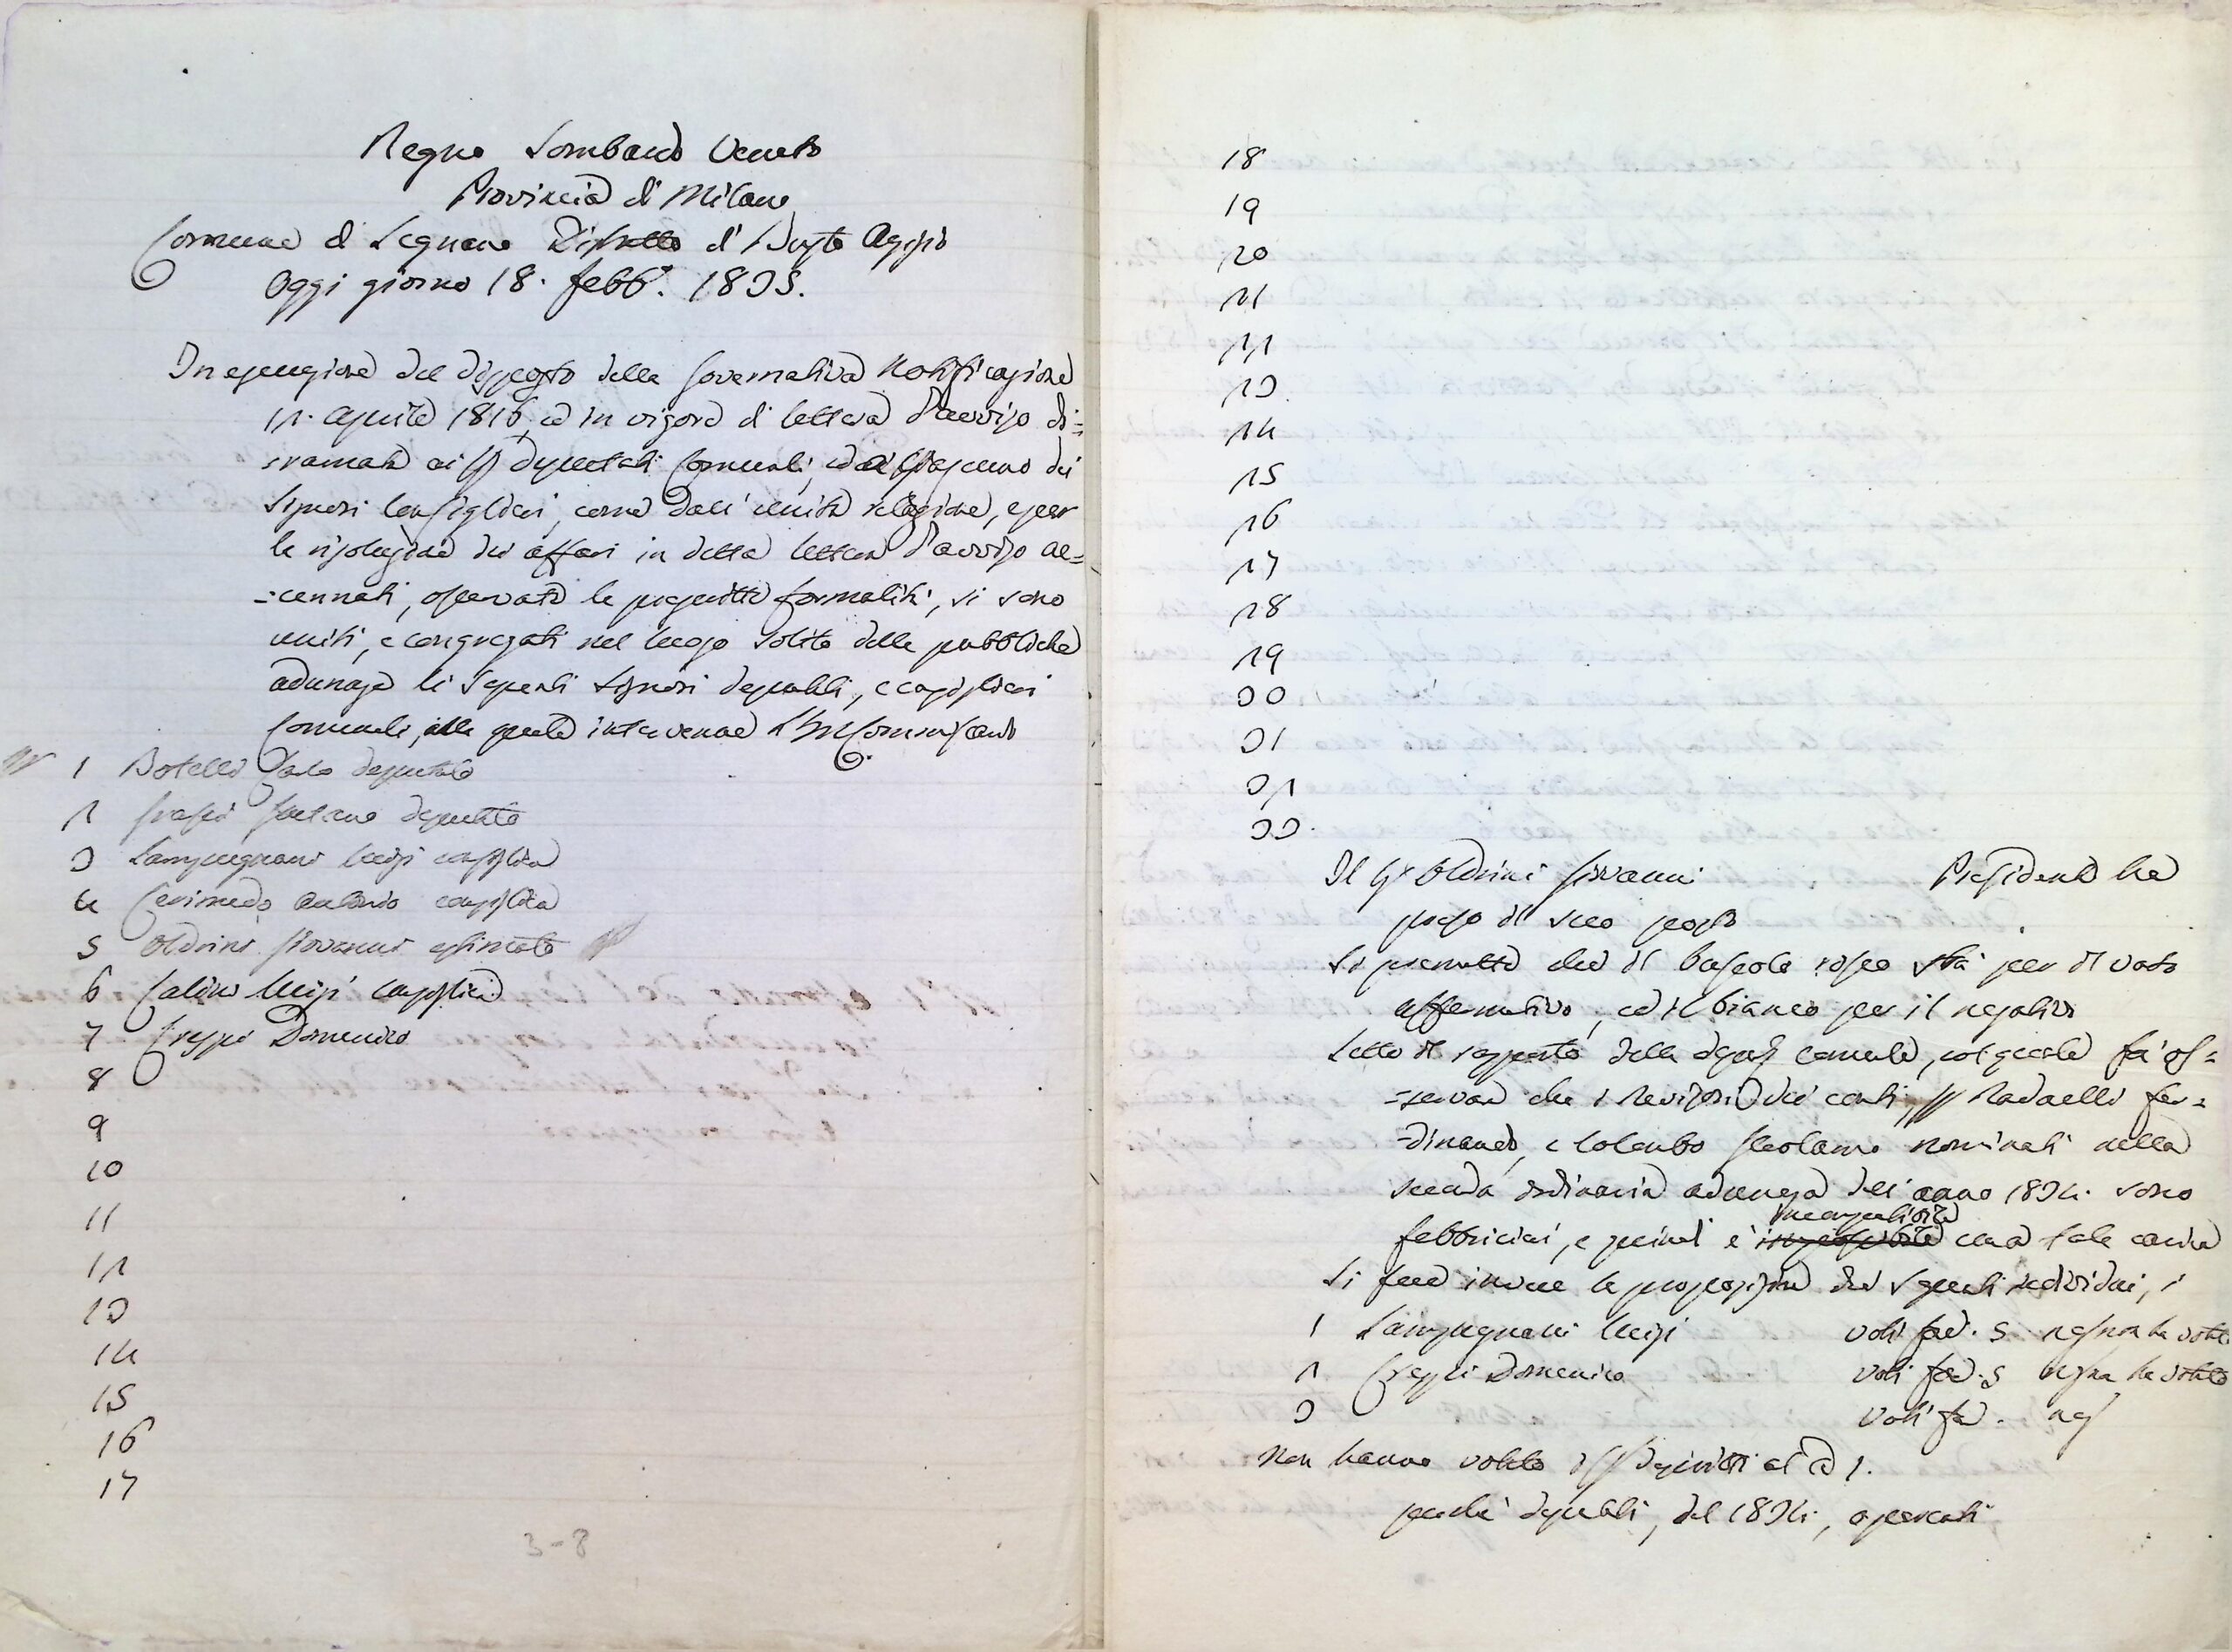 Regno Lombardo Veneto
Provincia di Milano
Comune di Legnano Distretto di Busto Arsizio
Oggi giorno 18. febb.° 1835.
In esecuzione del disposto della Governativa Notificazione
12. aprile 1816, ed in vigore di lettera d'avviso di=
=ramata ai SS. deputati Comunali, ed a ciascuno dei
Signori Consiglieri, come dall'unita relazione, e per
la risoluzione dei affari in detta lettera d'avviso ac=
=cennati, osservate le prescritte formalità, si sono
uniti, e congregati nel luogo solito delle pubbliche
adunanze li seguenti Signori deputati, e consiglieri
Comunali, alla quale interviene l'I.R. Commissario
1 Botelli Carlo deputato
2 Grassi Gaetano deputato
3 Lampugnani Luigi consigliere
4 Cerimedo Antonio consigliere
5 Oldrini Giovanni estimato
6 Calini Luigi consigliere
7 Crespi Domenico
8
9
10
11
12
13
14
15
16
17
3-8
18
19
20
21
22
23.
24
25
26
27
28
29
30
31
32
33.
Il Sr. Oldrini Giovanni Presidente ha
preso il suo posto
Si premette che il bussolo rosso sta per il voto
affermativo, ed il bianco per il negativo
Letto il rapporto della deput. comunale, col quale fa os=
=servare che i Revisori dei conti SS. Radaelli Fer=
=dinando, e Colombo Girolamo nominati nella
seconda ordinaria adunanza dell'anno 1834. sono
fabbricieri, e quindi è incompatibile una tale carica
Si fece invece la proposizione dei seguenti individui, i
1 Lampugnani Luigi voti fav. 5 neg. non ha votato
2 Crespi Domenico voti fav. 5 neg. non ha votato
3 voti fav. neg.
Non hanno votato i SS. descritti al 1.
perchè deputati, del 1834,